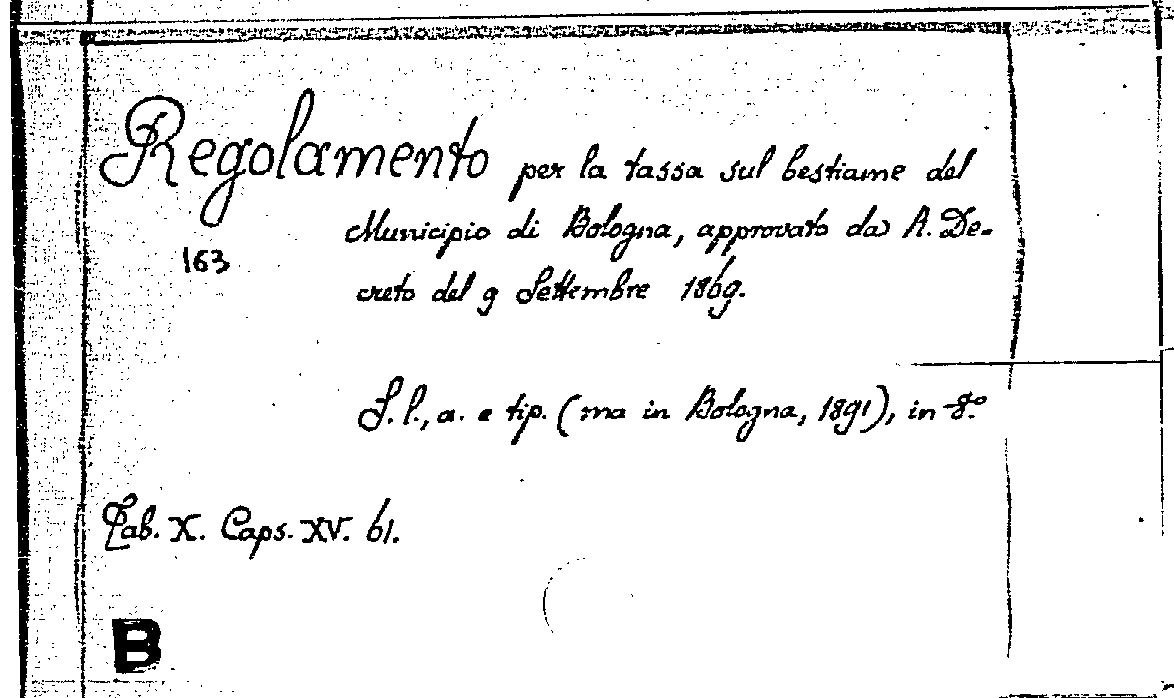 Regolamento per la tassa sul bestiame del
Municipio di Bologna, approvato da R. De-
creto del 9 Settembre 1869.
163
S. l., a. e tip. (ma in Bologna, 1891), in 8.º
Tab. X. Caps. XV. 61.
B